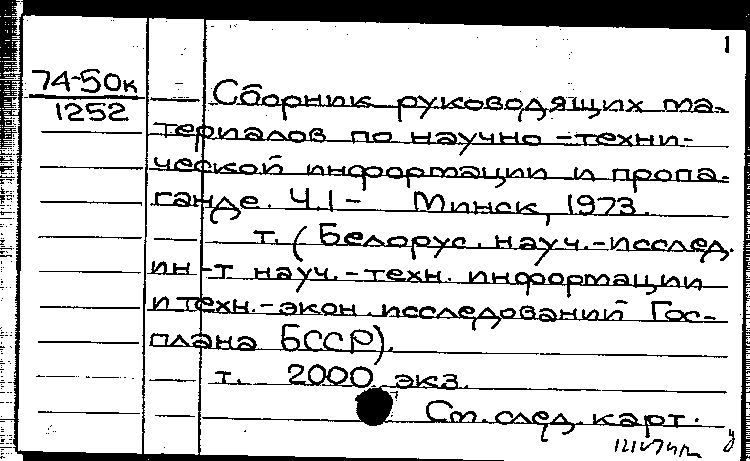 1
74-50к
1252
Сборник руководящих ма-
териалов по научно-техни-
ческой информации и пропа-
ганде. Ч.1- Минск, 1973.
т. (Белорус. науч.-исслед.
ин-т науч.-техн. информации
и техн.-экон. исследований Гос-
плана БССР).
т. 2000 экз.
См. след. карт.